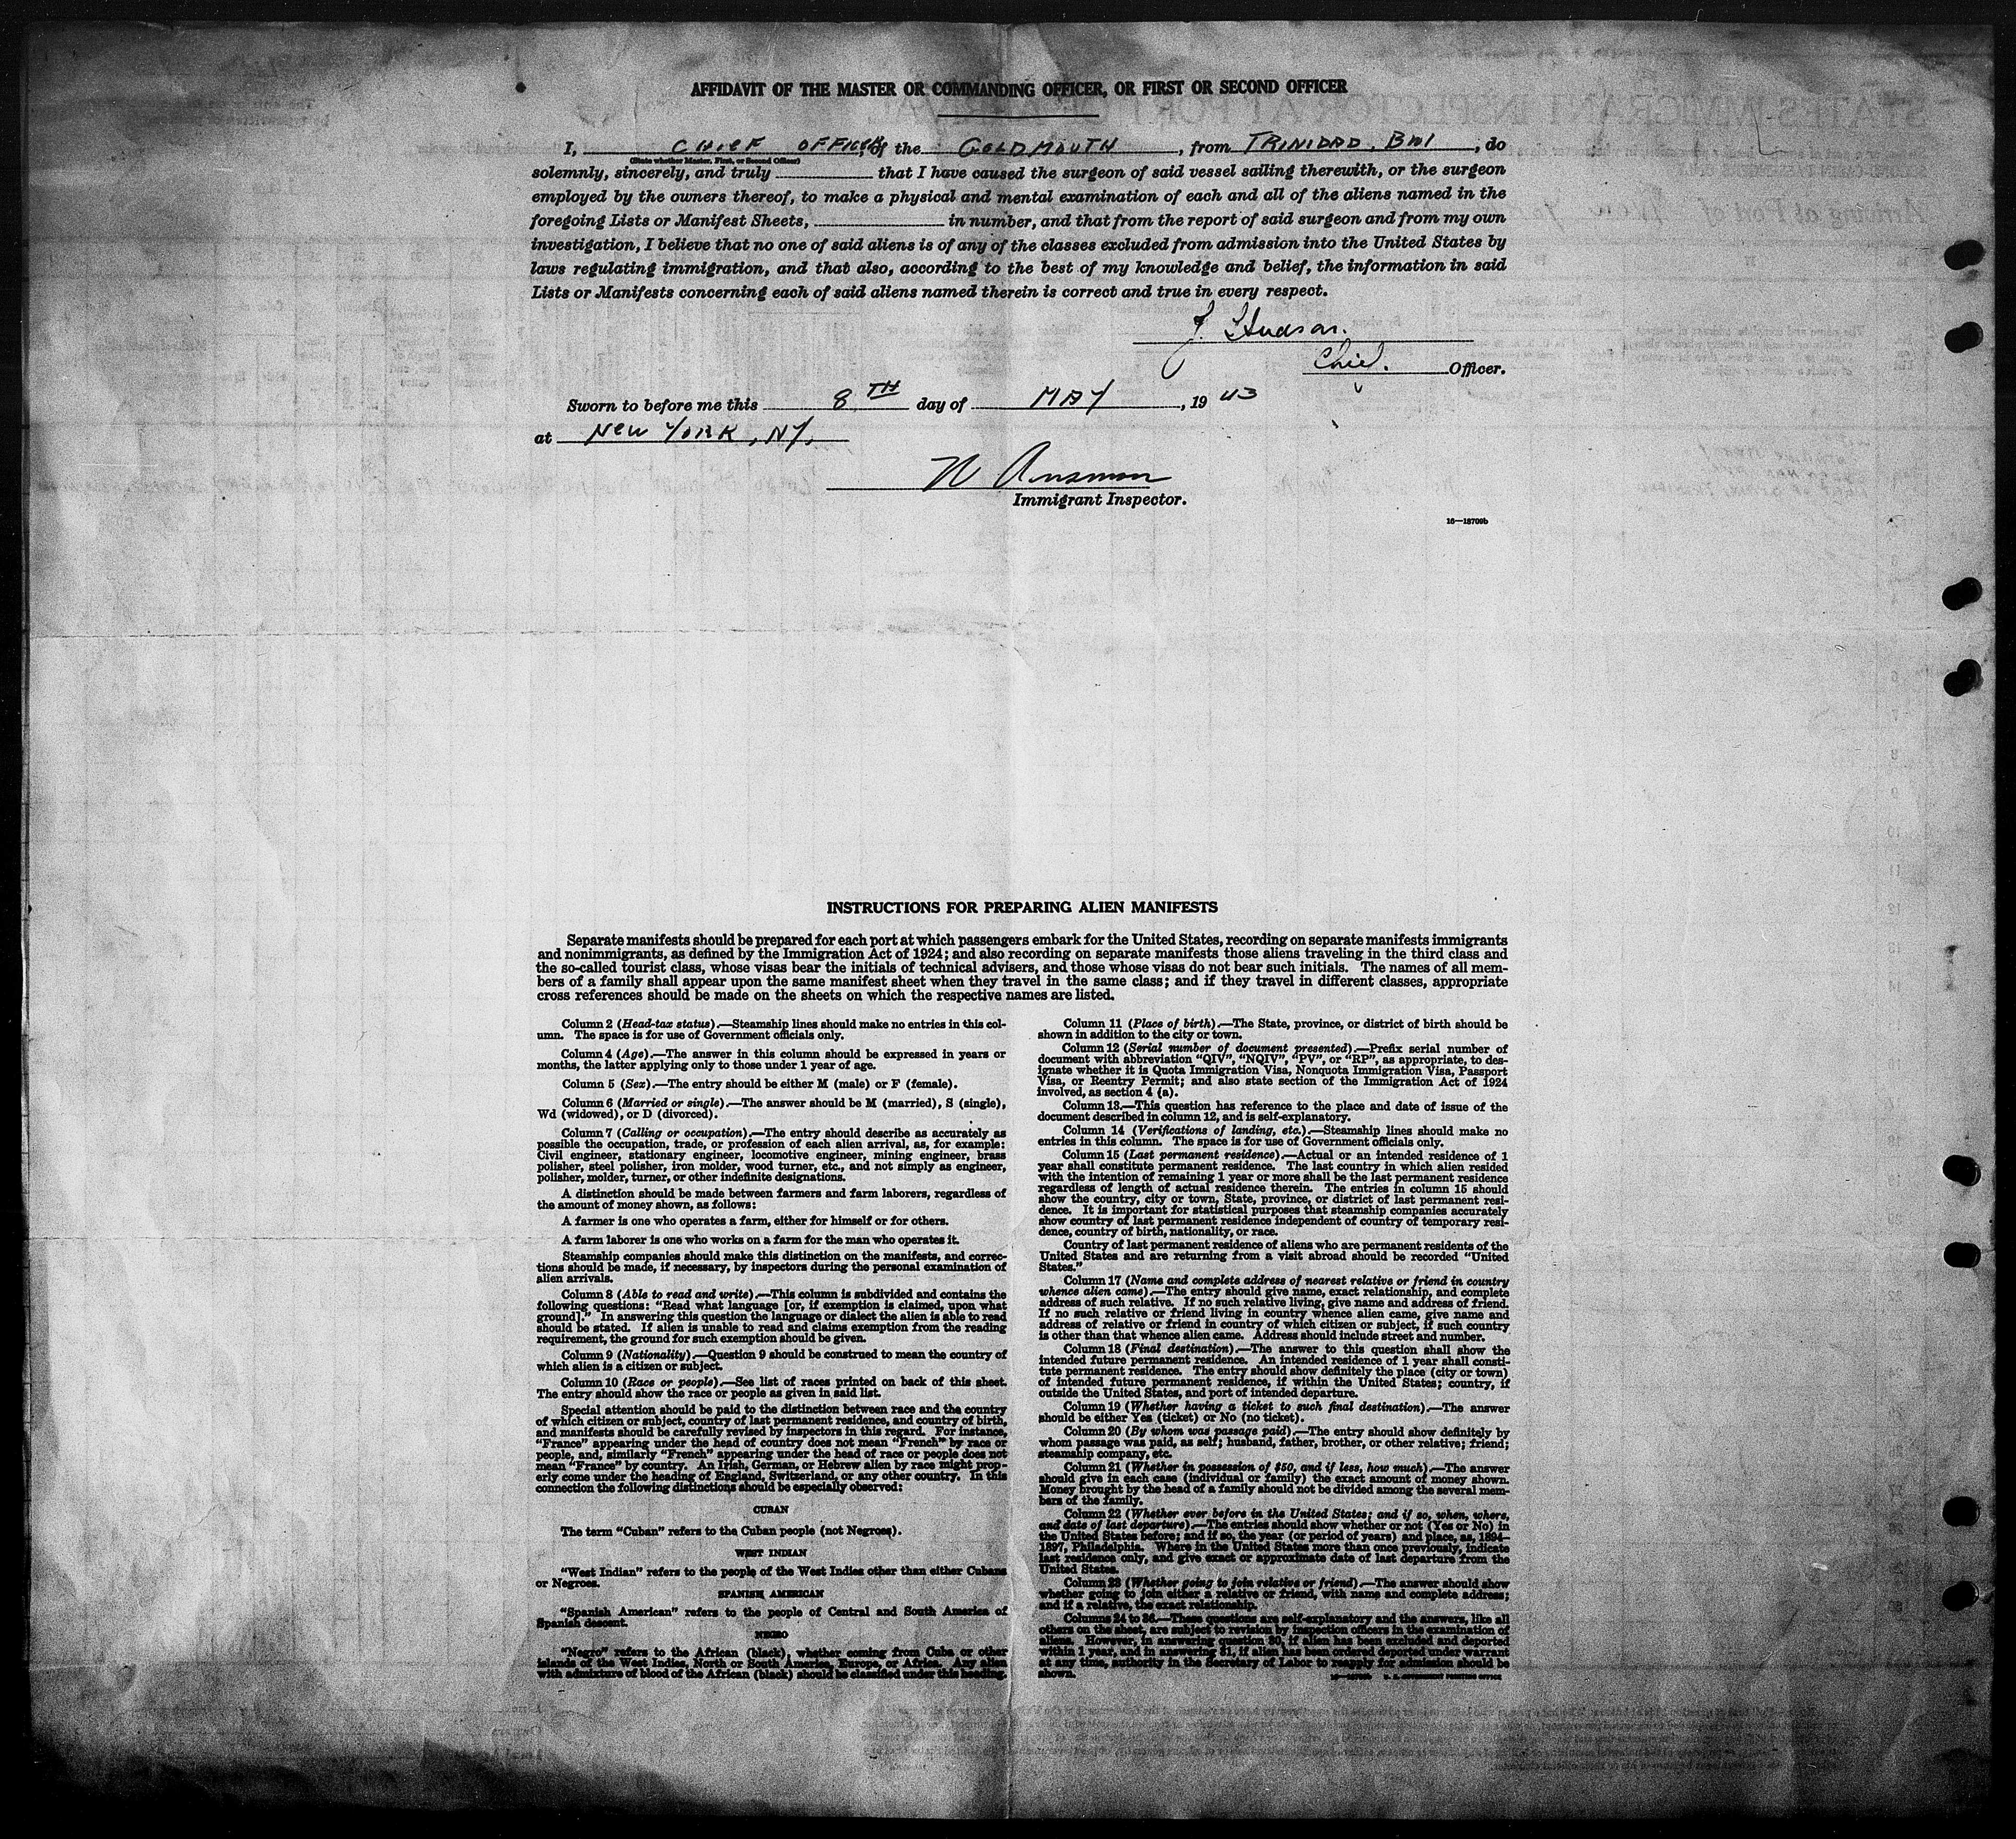 AFFIDAVIT OF THE MASTER OR COMMANDING OFFICER, OR FIRST OR SECOND OFFICER
I, CHIEF OFFICER, of the GOLDMOUTH, from TRINIDAD, BWI, do
(State whether Master, First, or Second Officer)
solemnly, sincerely, and truly that I have caused the surgeon of said vessel sailing therewith, or the surgeon
employed by the owners thereof, to make a physical and mental examination of each and all of the aliens named in the
foregoing Lists or Manifest Sheets, in number, and that from the report of said surgeon and from my own
investigation, I believe that no one of said aliens is of any of the classes excluded from admission into the United States by
laws regulating immigration, and that also, according to the best of my knowledge and belief, the information in said
Lists or Manifests concerning each of said aliens named therein is correct and true in every respect.
J. Hudson.
Chief. Officer.
Sworn to before me this 8TH day of MAY, 1943
at New York, NY.
Immigrant Inspector.
16—18709b
INSTRUCTIONS FOR PREPARING ALIEN MANIFESTS
Separate manifests should be prepared for each port at which passengers embark for the United States, recording on separate manifests immigrants
and nonimmigrants, as defined by the Immigration Act of 1924; and also recording on separate manifests those aliens traveling in the third class and
the so-called tourist class, whose visas bear the initials of technical advisers, and those whose visas do not bear such initials. The names of all mem-
bers of a family shall appear upon the same manifest sheet when they travel in the same class; and if they travel in different classes, appropriate
cross references should be made on the sheets on which the respective names are listed.
Column 2 (Head-tax status).—Steamship lines should make no entries in this col-
umn. The space is for use of Government officials only.
Column 4 (Age).—The answer in this column should be expressed in years or
months, the latter applying only to those under 1 year of age.
Column 5 (Sex).—The entry should be either M (male) or F (female).
Column 6 (Married or single).—The answer should be M (married), S (single),
Wd (widowed), or D (divorced).
Column 7 (Calling or occupation).—The entry should describe as accurately as
possible the occupation, trade, or profession of each alien arrival, as, for example:
Civil engineer, stationary engineer, locomotive engineer, mining engineer, brass
polisher, steel polisher, iron molder, wood turner, etc., and not simply as engineer,
polisher, molder, turner, or other indefinite designations.
A distinction should be made between farmers and farm laborers, regardless of
the amount of money shown, as follows:
A farmer is one who operates a farm, either for himself or for others.
A farm laborer is one who works on a farm for the man who operates it.
Steamship companies should make this distinction on the manifests, and correc-
tions should be made, if necessary, by inspectors during the personal examination of
alien arrivals.
Column 8 (Able to read and write).—This column is subdivided and contains the
following questions: "Read what language [or, if exemption is claimed, upon what
ground]." In answering this question the language or dialect the alien is able to read
should be stated. If alien is unable to read and claims exemption from the reading
requirement, the ground for such exemption should be given.
Column 9 (Nationality).—Question 9 should be construed to mean the country of
which alien is a citizen or subject.
Column 10 (Race or people).—See list of races printed on back of this sheet.
The entry should show the race or people as given in said list.
Special attention should be paid to the distinction between race and the country
of which citizen or subject, country of last permanent residence, and country of birth,
and manifests should be carefully revised by inspectors in this regard. For instance,
"France" appearing under the head of country does not mean "French" by race or
people, and, similarly "French" appearing under the head of race or people does not
mean "France" by country. An Irish, German, or Hebrew alien by race might prop-
erly come under the heading of England, Switzerland, or any other country. In this
connection the following distinctions should be especially observed:
CUBAN
The term "Cuban" refers to the Cuban people (not Negroes).
WEST INDIAN
"West Indian" refers to the people of the West Indies other than either Cubans
or Negroes.
SPANISH AMERICAN
"Spanish American" refers to the people of Central and South America of
Spanish descent.
NEGRO
"Negro" refers to the African (black), whether coming from Cuba or other
islands of the West Indies, North or South America, Europe, or Africa. Any alien
with admixture of blood of the African (black) should be classified under this heading.
Column 11 (Place of birth).—The State, province, or district of birth should be
shown in addition to the city or town.
Column 12 (Serial number of document presented).—Prefix serial number of
document with abbreviation "QIV", "NQIV", "PV", or "RP", as appropriate, to des-
ignate whether it is Quota Immigration Visa, Nonquota Immigration Visa, Passport
Visa, or Reentry Permit; and also state section of the Immigration Act of 1924
involved, as section 4 (a).
Column 13.—This question has reference to the place and date of issue of the
document described in column 12, and is self-explanatory.
Column 14 (Verifications of landing, etc.).—Steamship lines should make no
entries in this column. The space is for use of Government officials only.
Column 15 (Last permanent residence).—Actual or an intended residence of 1
year shall constitute permanent residence. The last country in which alien resided
with the intention of remaining 1 year or more shall be the last permanent residence
regardless of length of actual residence therein. The entries in column 15 should
show the country, city or town, State, province, or district of last permanent resi-
dence. It is important for statistical purposes that steamship companies accurately
show country of last permanent residence independent of country of temporary resi-
dence, country of birth, nationality, or race.
Country of last permanent residence of aliens who are permanent residents of the
United States and are returning from a visit abroad should be recorded "United
States."
Column 17 (Name and complete address of nearest relative or friend in country
whence alien came).—The entry should give name, exact relationship, and complete
address of such relative. If no such relative living, give name and address of friend.
If no such relative or friend living in country whence alien came, give name and
address of relative or friend in country of which citizen or subject, if such country
is other than that whence alien came. Address should include street and number.
Column 18 (Final destination).—The answer to this question shall show the
intended future permanent residence. An intended residence of 1 year shall consti-
tute permanent residence. The entry should show definitely the place (city or town)
of intended future permanent residence, if within the United States; country, if
outside the United States, and port of intended departure.
Column 19 (Whether having a ticket to such final destination).—The answer
should be either Yes (ticket) or No (no ticket).
Column 20 (By whom was passage paid).—The entry should show definitely by
whom passage was paid, as self; husband, father, brother, or other relative; friend;
steamship company, etc.
Column 21 (Whether in possession of $50, and if less, how much).—The answer
should give in each case (individual or family) the exact amount of money shown.
Money brought by the head of a family should not be divided among the several mem-
bers of the family.
Column 22 (Whether ever before in the United States; and if so, when, where,
and date of last departure).—The entries should show whether or not (Yes or No) in
the United States before; and if so, the year (or period of years) and place, as, 1894–
1897, Philadelphia. Where in the United States more than once previously, indicate
last residence only, and give exact or approximate date of last departure from the
United States.
Column 23 (Whether going to join relative or friend).—The answer should show
whether going to join either a relative or friend, with name and complete address;
and if a relative, the exact relationship.
Columns 24 to 36.—These questions are self-explanatory and the answers, like all
others on the sheet, are subject to revision by inspection officers in the examination of
aliens. However, in answering question 30, if alien has been excluded and deported
within 1 year, and in answering 31, if alien has been ordered deported under warrant
at any time, authority in the Secretary of Labor to reapply for admission should be
shown.
U. S. GOVERNMENT PRINTING OFFICE